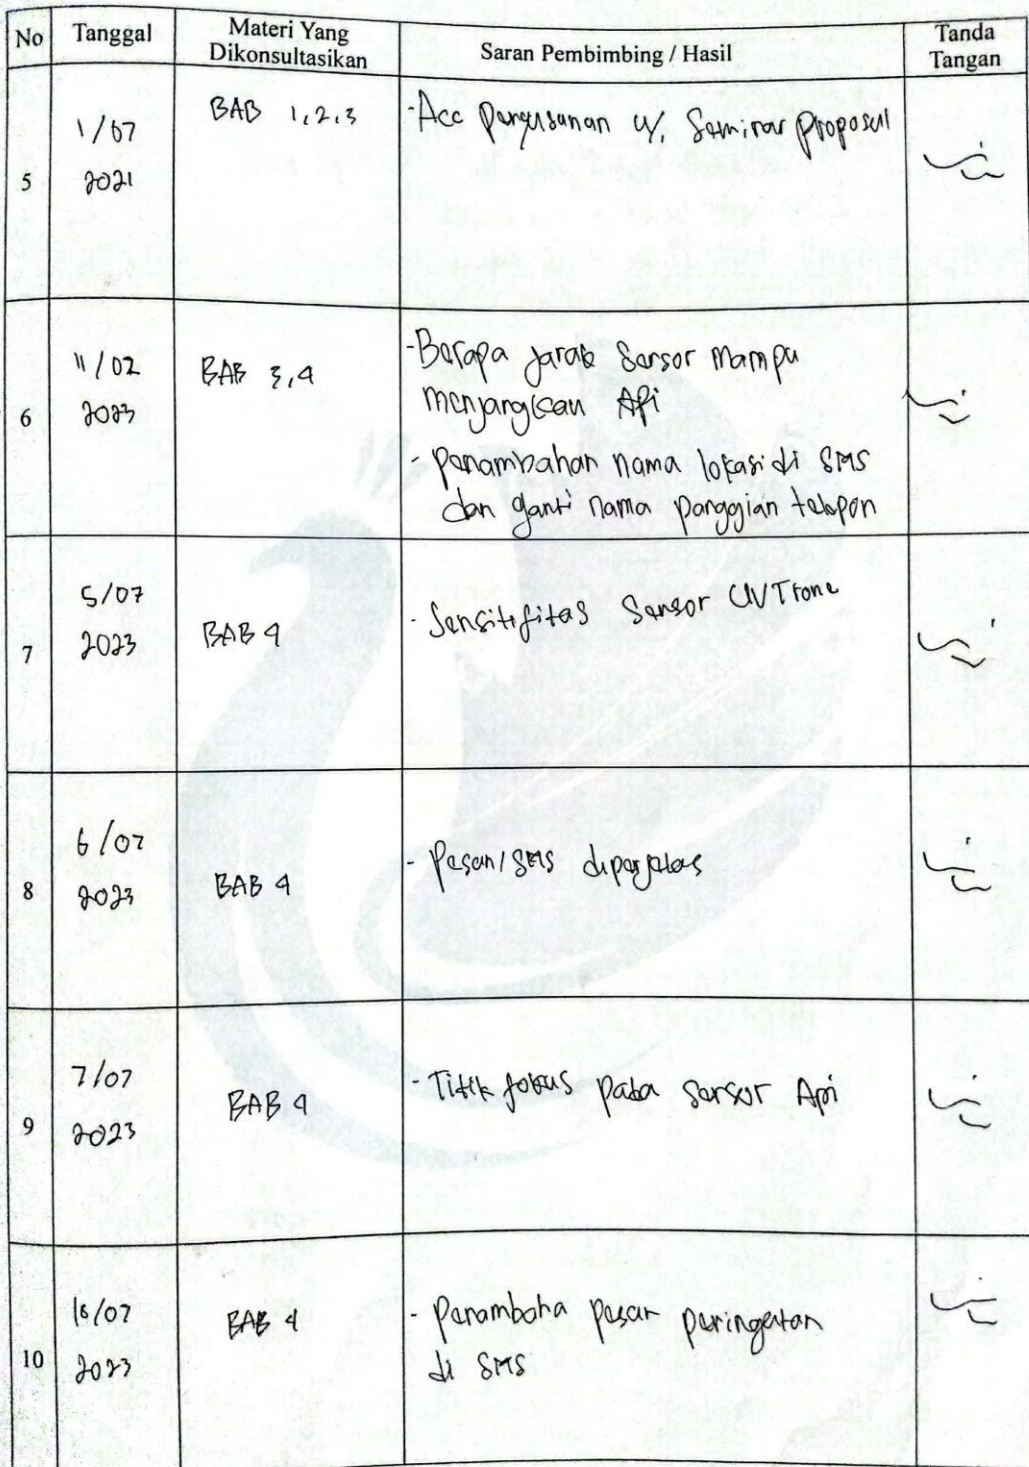 No Tanggal Materi Yang Dikonsultasikan Saran Pembimbing / Hasil Tanda Tangan
5 1/07 2021 BAB 1,2,3 - Acc pengusunan u/ Seminar proposal
6 11/02 2023 BAB 3,4 - Berapa jarak Sensor mampu
menjangkau Api
- penambahan nama lokasi di SMS
dan ganti nama panggian telepon
7 5/07 2023 BAB 4 - Sensitifitas Sensor UVTron
8 6/07 2023 BAB 4 - Pesan/SMS diperjelas
9 7/07 2023 BAB 4 - Titik fokus pada Sensor Api
10 2023 BAB 4 - Penambaha pesan peringatan
di SMS